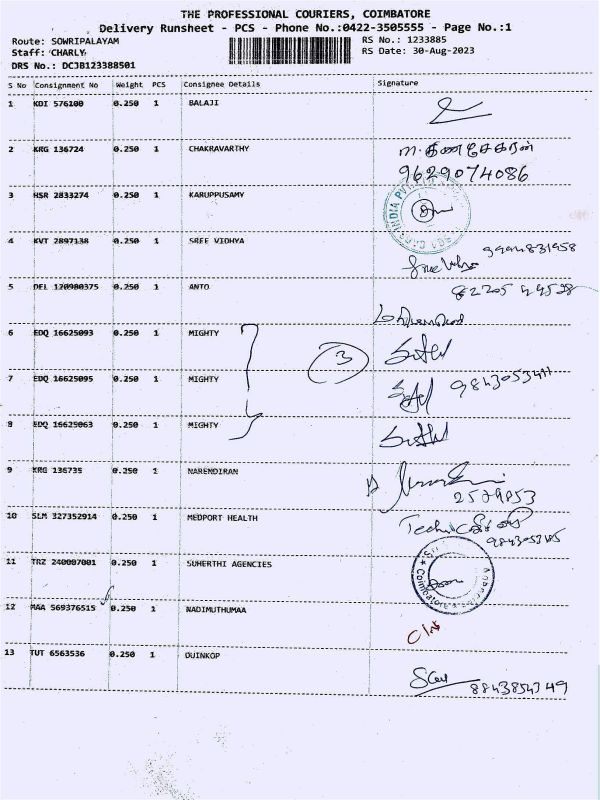 THE PROFESSIONAL COURIERS, COIMBATORE
Delivery Runsheet - PCS - Phone No.:0422-3505555 - Page No.:1
Route: SOWRIPALAYAM RS No.: 1233885
Staff: CHARLY RS Date: 30-Aug-2023
DRS No.: DCJB123388501
S No Consignment No Weight PCS Consignee Details Signature
1 KDI 576100 0.250 1 BALAJI
2 KRG 136724 0.250 1 CHAKRAVARTHY
9629074086
3 HSR 2833274 0.250 1 KARUPPUSAMY
4 KVT 2897138 0.250 1 SREE VIDHYA
5 DEL 120980375 0.250 1 ANTO
6 EDQ 16625093 0.250 1 MIGHTY
3
7 EDQ 16625095 0.250 1 MIGHTY
8 EDQ 16625063 0.250 1 MIGHTY
9 KRG 136735 0.250 1 NARENDIRAN
10 SLM 327352914 0.250 1 MEDPORT HEALTH
11 TRZ 240007001 0.250 1 SUHERTHI AGENCIES
12 MAA 569376515 0.250 1 NADIMUTHUMAA
13 TUT 6563536 0.250 1 DUINKOP